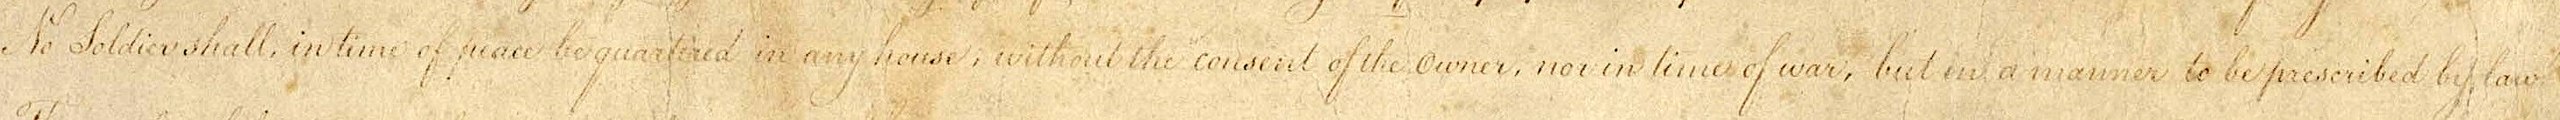 No Soldier shall, in time of peace be quartered in any house, without the consent of the Owner, nor in time of war, but in a manner to be prescribed by law.